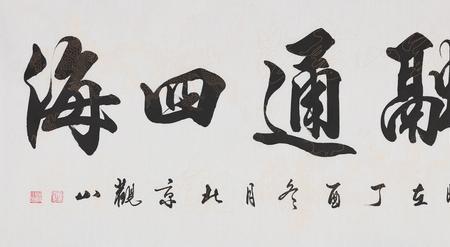 融通四海
在丁酉冬月北京觀山